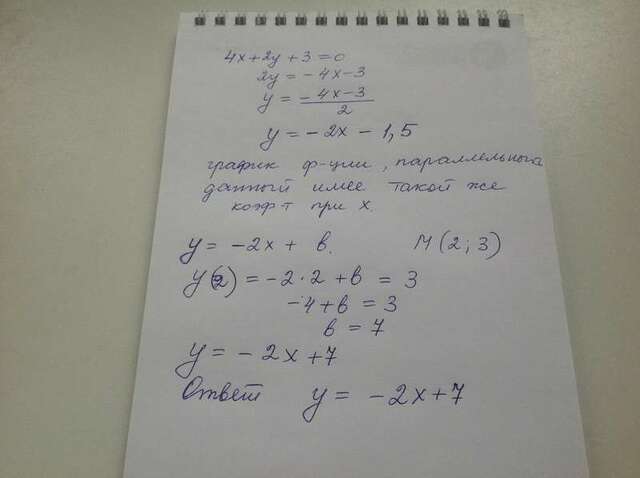 4x+2y+3=0
2y = -4x-3
y = -4x-3/2
y = -2x - 1,5
график ф-ции, параллельного
данный имее такой же
коэф-т при x.
y = -2x + b. M(2;3)
y(2) = -2·2+b = 3
-4+b = 3
b = 7
y = -2x+7
Ответ y = -2x+7